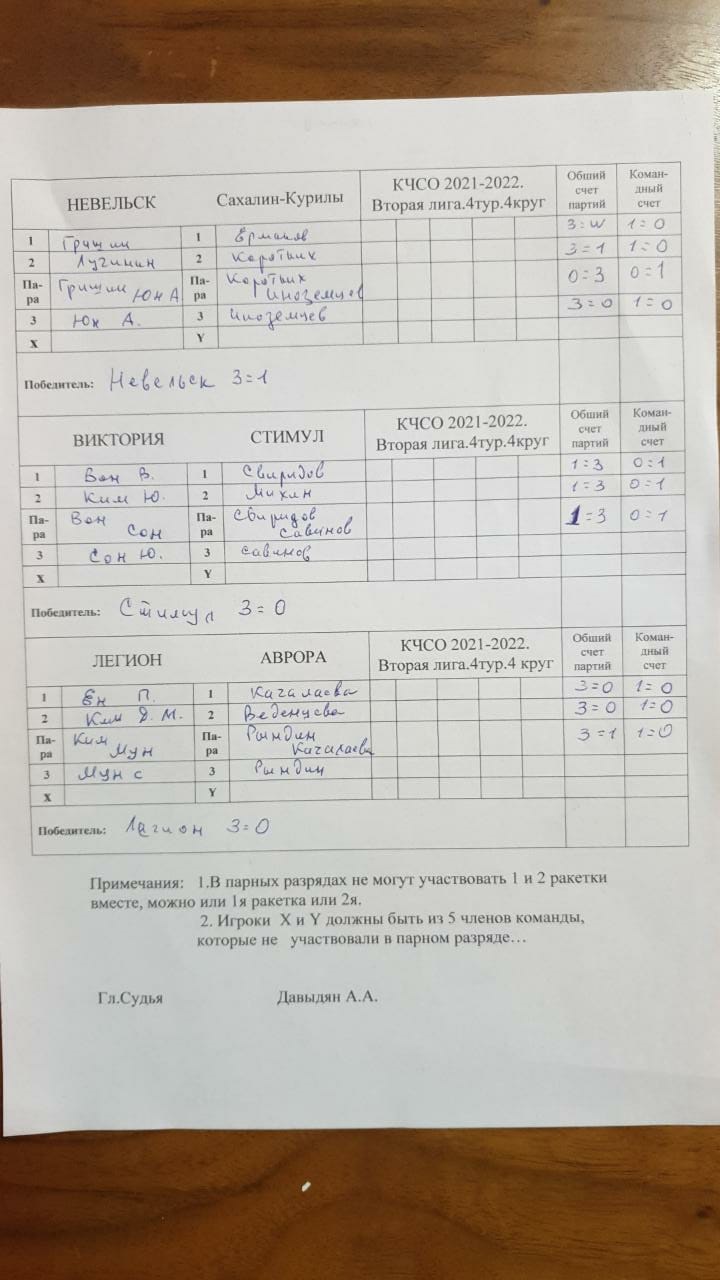 НЕВЕЛЬСК Сахалин-Курилы КЧСО 2021-2022. Вторая лига.4тур.4круг Общий счет партий Коман-дный счет
1 Гришин 1 Ермаков 3=W 1=0
2 Лугинин 2 Коротких 3=1 1=0
Па-ра Гришин Юн А Па-ра Коротких Иноземцев 0=3 0=1
3 Юн А. 3 Иноземцев 3=0 1=0
X Y
Победитель: Невельск 3=1
ВИКТОРИЯ СТИМУЛ КЧСО 2021-2022. Вторая лига.4тур.4круг Общий счет партий Коман-дный счет
1 Вон В. 1 Свиридов 1=3 0=1
2 Ким Ю. 2 Михин 1=3 0=1
Па-ра Вон Сон Па-ра Свиридов Савинов 1=3 0=1
3 Сон Ю. 3 Савинов
X Y
Победитель: Стимул 3=0
ЛЕГИОН АВРОРА КЧСО 2021-2022. Вторая лига.4тур.4 круг Общий счет партий Коман-дный счет
1 Ен П. 1 Качалаева 3=0 1=0
2 Ким Д. М. 2 Веденцева 3=0 1=0
Па-ра Ким Мун Па-ра Рындин Качалаева 3=1 1=0
3 Мун С 3 Рындин
X Y
Победитель: Легион 3=0
Примечания: 1.В парных разрядах не могут участвовать 1 и 2 ракетки
вместе, можно или 1я ракетка или 2я.
2. Игроки X и Y должны быть из 5 членов команды,
которые не участвовали в парном разряде…
Гл.Судья Давыдян А.А.